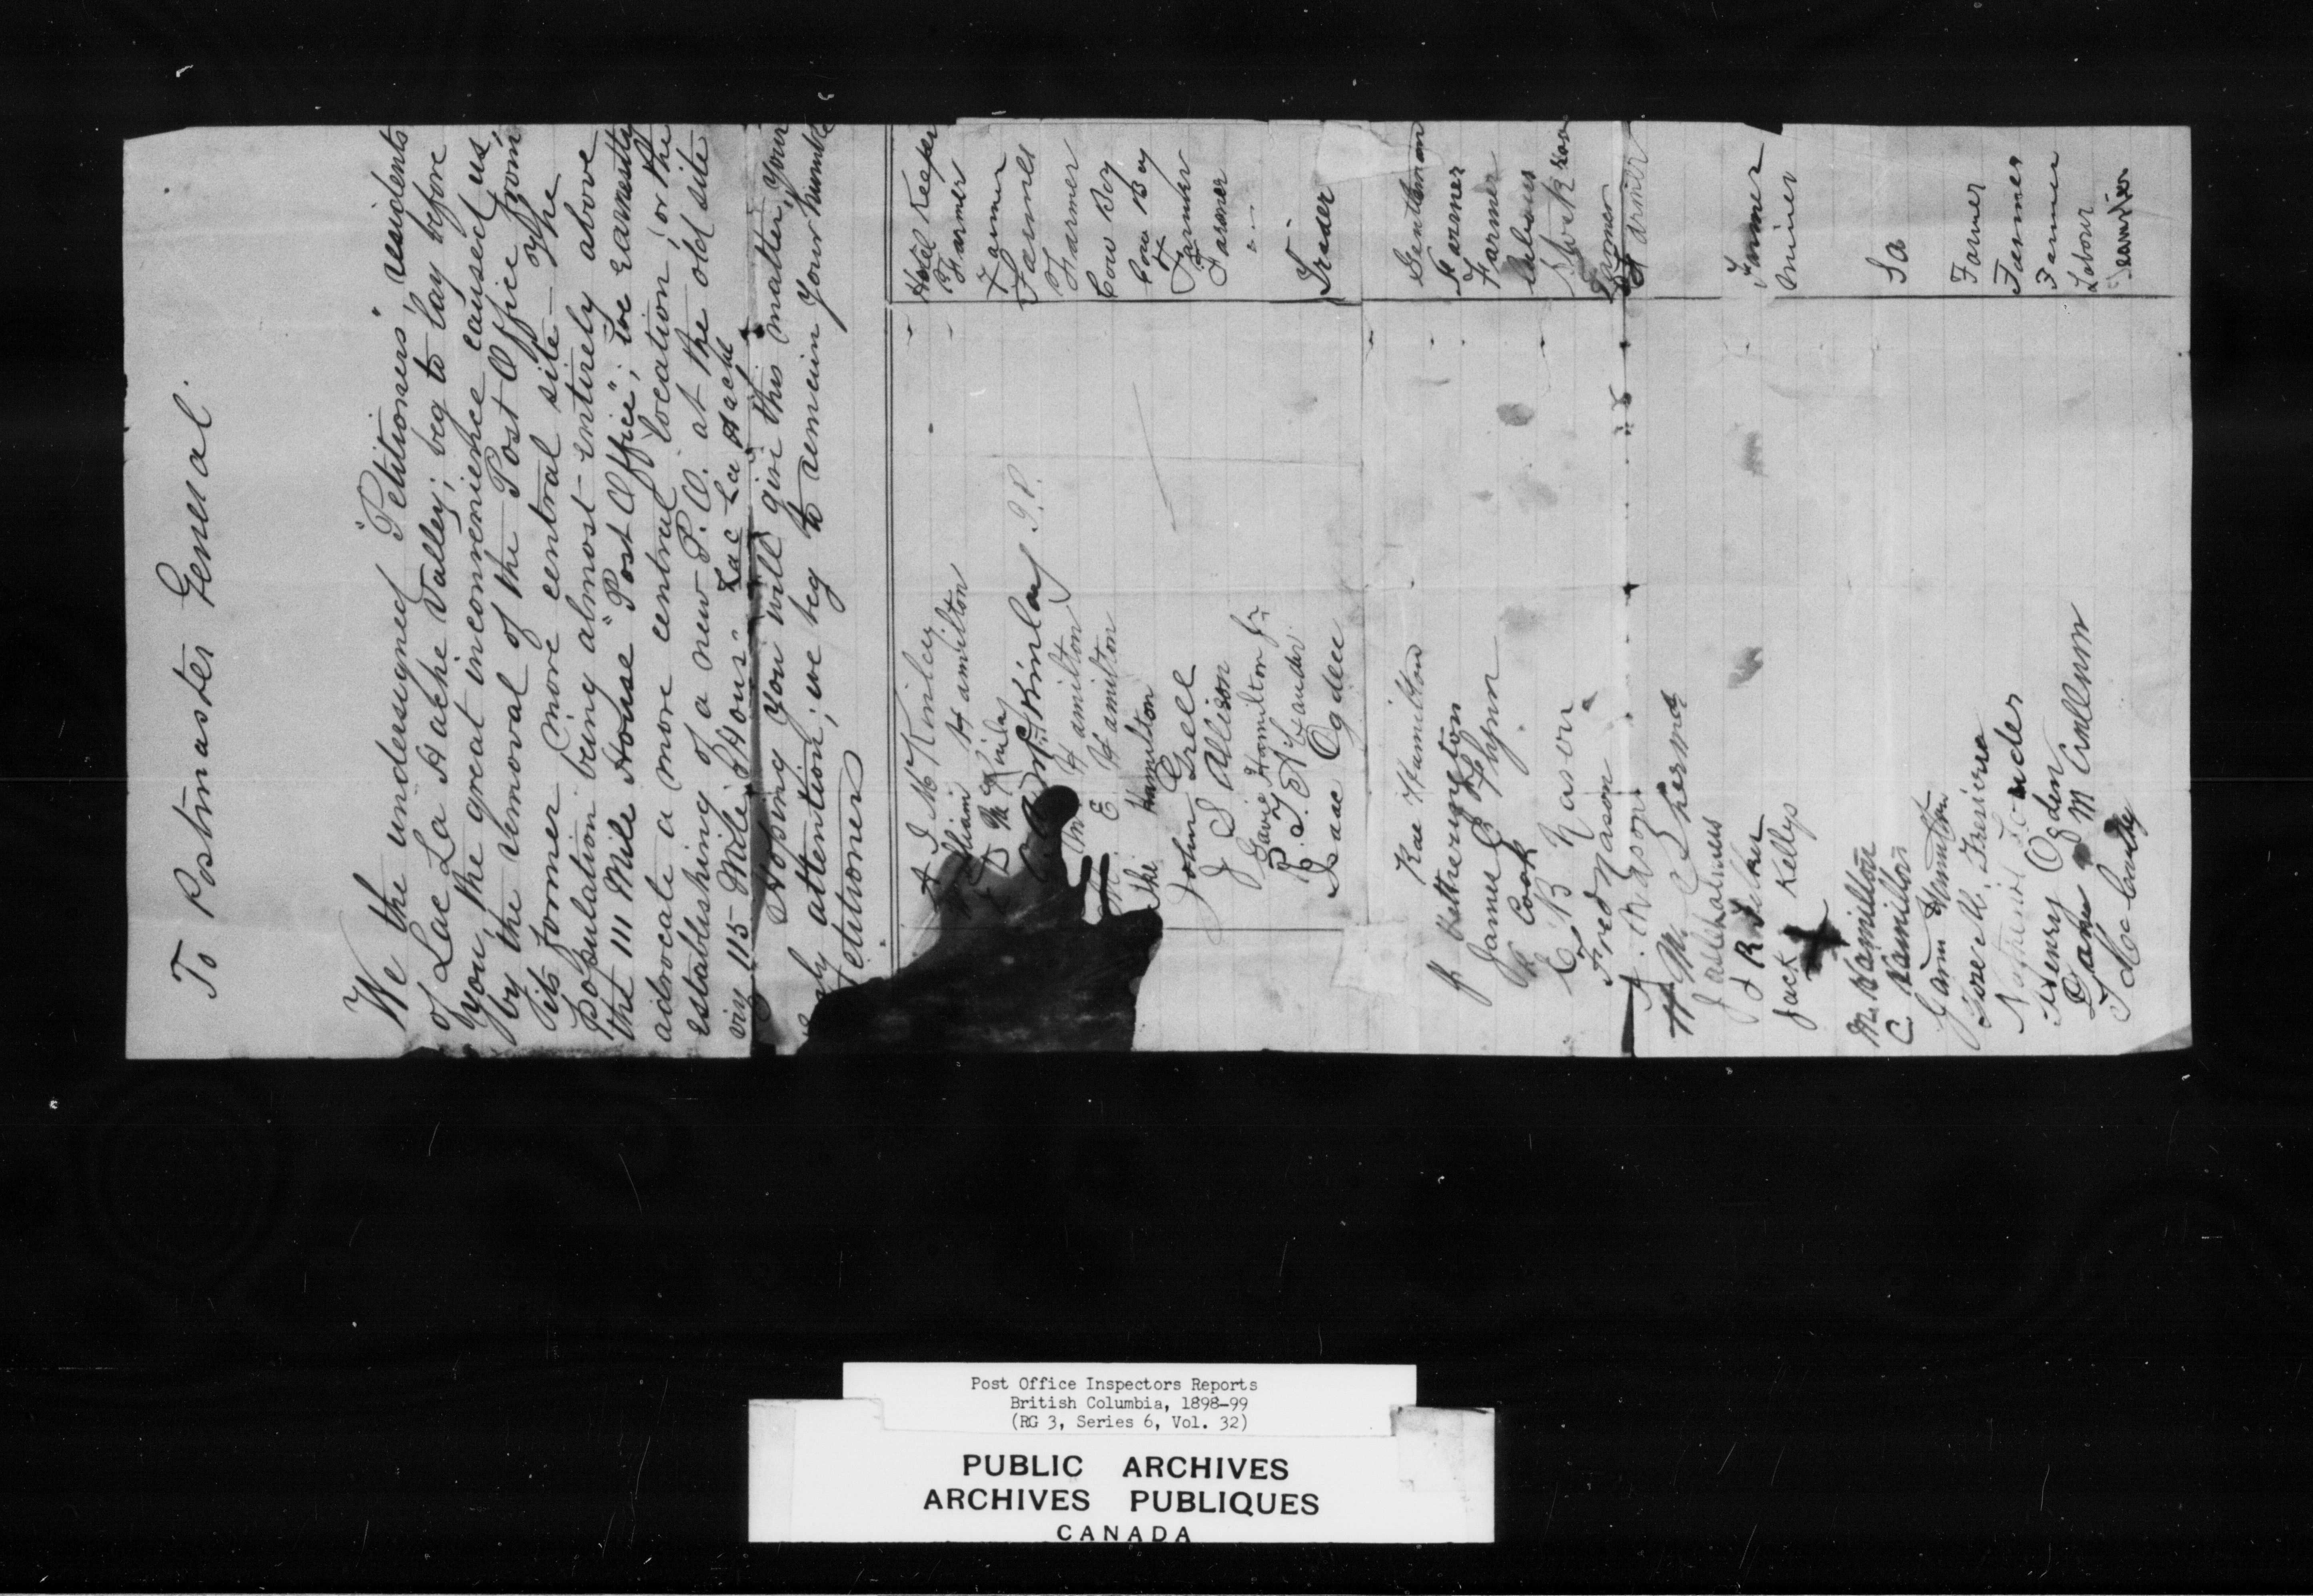 To Postmaster General.
We the undersigned "Petitioners", residents
of Lac La Hache Valley; beg to lay before
you, the great inconvenience caused us,
by the removal of the Post Office from
its former more central site - The
Population being almost entirely above
the 111 Mile House "Post Office"; we earnestly
advocate a more central location, or the
establishing of a new P.O. at the old site
viz 115 Mile House Lac La Hache
Hoping you will give this matter, your
attention; we beg to remain Your humble
Petitioners
A I McKinley Hotel Keeper
William Hamilton Farmer
D McKinlay Farmer
McKinlay J.P. Farmer
Hamilton Farmer
E Hamilton Cow Boy
Hamilton Cow Boy
John Grell Farmer
J S Allison Farmer
Gavin Hamilton Jr "
R. T. Lauder
Isaac Ogden Trader
Rae Hamilton Gentleman
Hetherington Farmer
James Flynn Farmer
Cook
C B Nason
Fred Nason Farmer
Nason Farmer
W. M. C. Sherwood
J R Farmer
Jack Kellys Miner
X
M. Hamilton
C Hamilton Do
Gavin Hamilton
Farmer
Nathaniel Farmer
Henry Ogden Farmer
Dan M Labour
McCarthy
Post Office Inspectors Reports
British Columbia, 1898-99
(RG 3, Series 6, Vol. 32)
PUBLIC ARCHIVES
ARCHIVES PUBLIQUES
CANADA